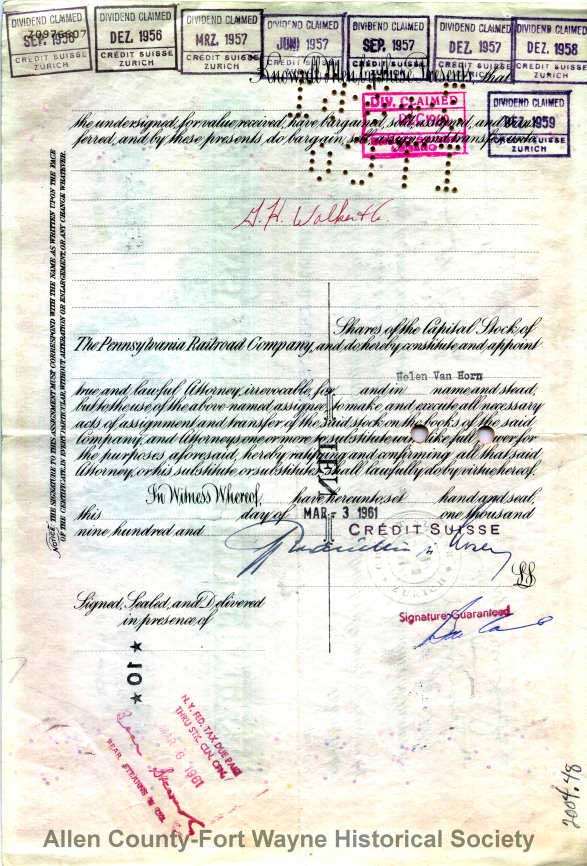 DIVIDEND CLAIMED
SEP. 1956
CREDIT SUISSE
ZURICH
DIVIDEND CLAIMED
DEZ. 1956
CREDIT SUISSE
ZURICH
DIVIDEND CLAIMED
MRZ. 1957
CREDIT SUISSE
ZURICH
DIVIDEND CLAIMED
JUNI 1957
CREDIT SUISSE
ZURICH
DIVIDEND CLAIMED
SEP. 1957
CREDIT SUISSE
ZURICH
DIVIDEND CLAIMED
DEZ. 1957
CREDIT SUISSE
ZURICH
DIVIDEND CLAIMED
DEZ. 1958
CREDIT SUISSE
ZURICH
Know all Men by these Presents, that
DIV. CLAIMED
DIVIDEND CLAIMED
DEZ. 1959
CREDIT SUISSE
ZURICH
the undersigned, for value received, have bargained, sold, assigned, and trans-
ferred, and by these presents do bargain, sell, assign and transfer unto
G. H. Walker & Co
Shares of the Capital Stock of
The Pennsylvania Railroad Company, and do hereby constitute and appoint
Helen Van Horn
true and lawful Attorney, irrevocable, for and in name and stead,
but to the use of the above named assignee to make and execute all necessary
acts of assignment and transfer of the said stock on the books of the said
Company, and Attorneys one or more to substitute with like full power for
the purposes aforesaid, hereby ratifying and confirming all that said
Attorney, or his substitute or substitutes shall lawfully do by virtue hereof.
In Witness Whereof, have hereunto set hand and seal,
this day of MAR - 3 1961 one thousand
nine hundred and CRÉDIT SUISSE
L.S.
Signed, Sealed, and Delivered
in presence of
Signature Guaranteed
★ 10 ★
N. Y. FED. TAX DUE PAID
THRU STK. CLR. CPN.
1961
BEAR, STEARNS & CO.
NOTICE THE SIGNATURE TO THIS ASSIGNMENT MUST CORRESPOND WITH THE NAME AS WRITTEN UPON THE FACE
OF THE CERTIFICATE, IN EVERY PARTICULAR, WITHOUT ALTERATION OR ENLARGEMENT, OR ANY CHANGE WHATEVER.
2004.48
Allen County-Fort Wayne Historical Society